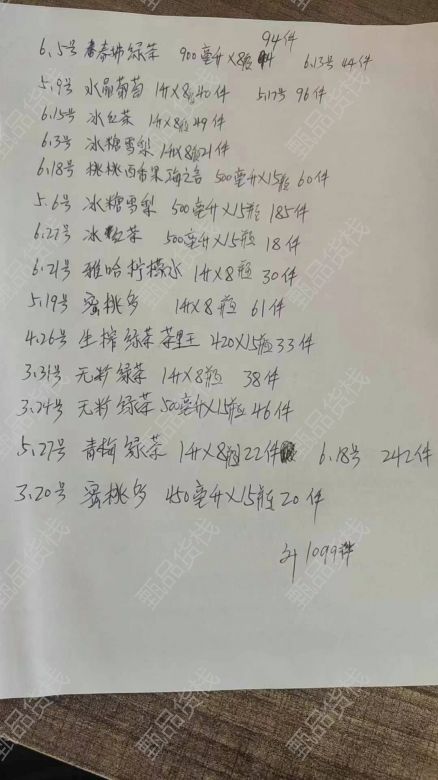 94件
6.5号 春拂绿茶 900毫升×8瓶 6.13号 44件
5.9号 水晶葡萄 1升×8瓶40件 5.17号 96件
6.15号 冰红茶 1升×8瓶49件
6.3号 冰糖雪梨 1升×8瓶21件
6.18号 桃桃百香果海之言 500毫升×15瓶 60件
5.6号 冰糖雪梨 500毫升×15瓶 185件
6.22号 冰红茶 500毫升×15瓶 18件
6.21号 雅哈柠檬水 1升×8瓶 30件
5.19号 蜜桃多 1升×8瓶 61件
4.26号 生榨绿茶茶里王 420×15瓶33件
3.31号 无糖绿茶 1升×8瓶 38件
3.24号 无糖绿茶500毫升×15瓶46件
5.27号 青梅绿茶 1升×8瓶22件 6.18号 242件
3.20号 蜜桃多 450毫升×15瓶20件
计1099件
甄品货栈